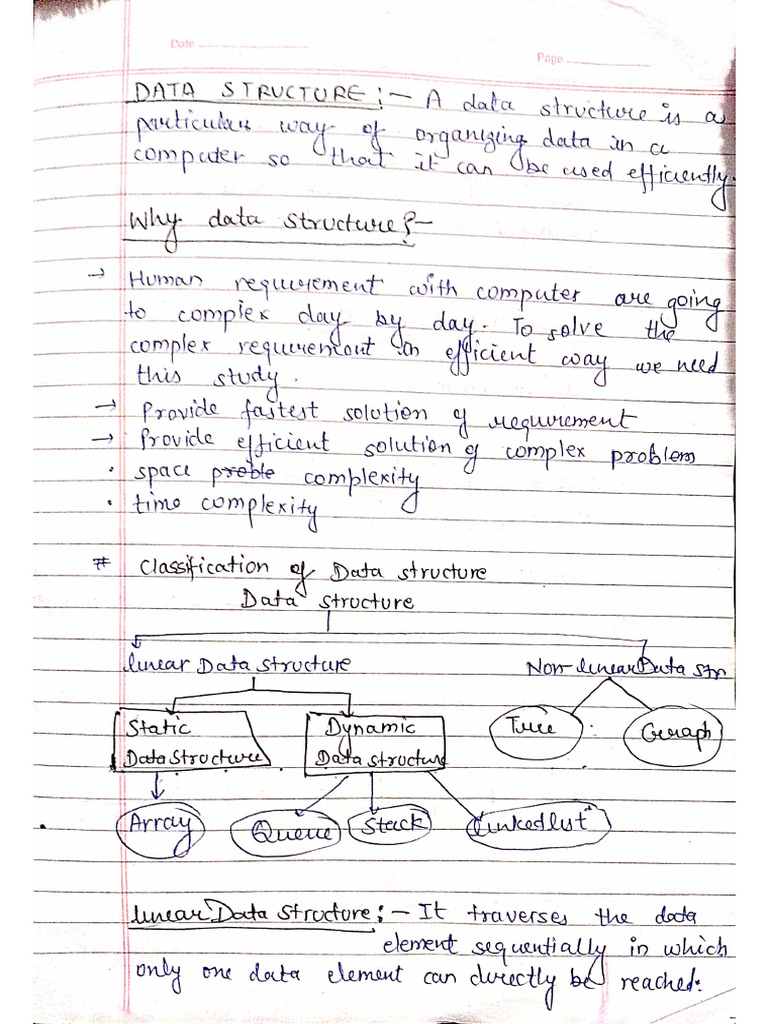 Date
Page
DATA STRUCTURE :- A data structure is a
particular way of organizing data in a
computer so that it can be used efficiently.
Why data structure?-
→ Human requirement with computer are going
to complex day by day. To solve the
complex requirement in efficient way we need
this study.
→ Provide fastest solution of requirement
→ Provide efficient solution of complex problem
• space proble complexity
• time complexity
# Classification of Data structure
Data structure
linear Data structure Non-linear Data str
Static Dynamic Tree Graph
Data Structure Data structure
Array Queue Stack Linked list
linear Data structure :- It traverses the data
element sequentially in which
only one data element can directly be reached.